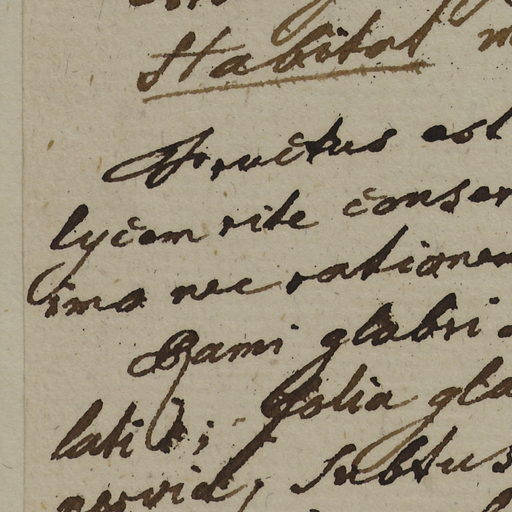 Habitat
Fructus est
lycem rite conser
imo nec rationem
Rami glabri
lati; folia gla
nervia, subtus